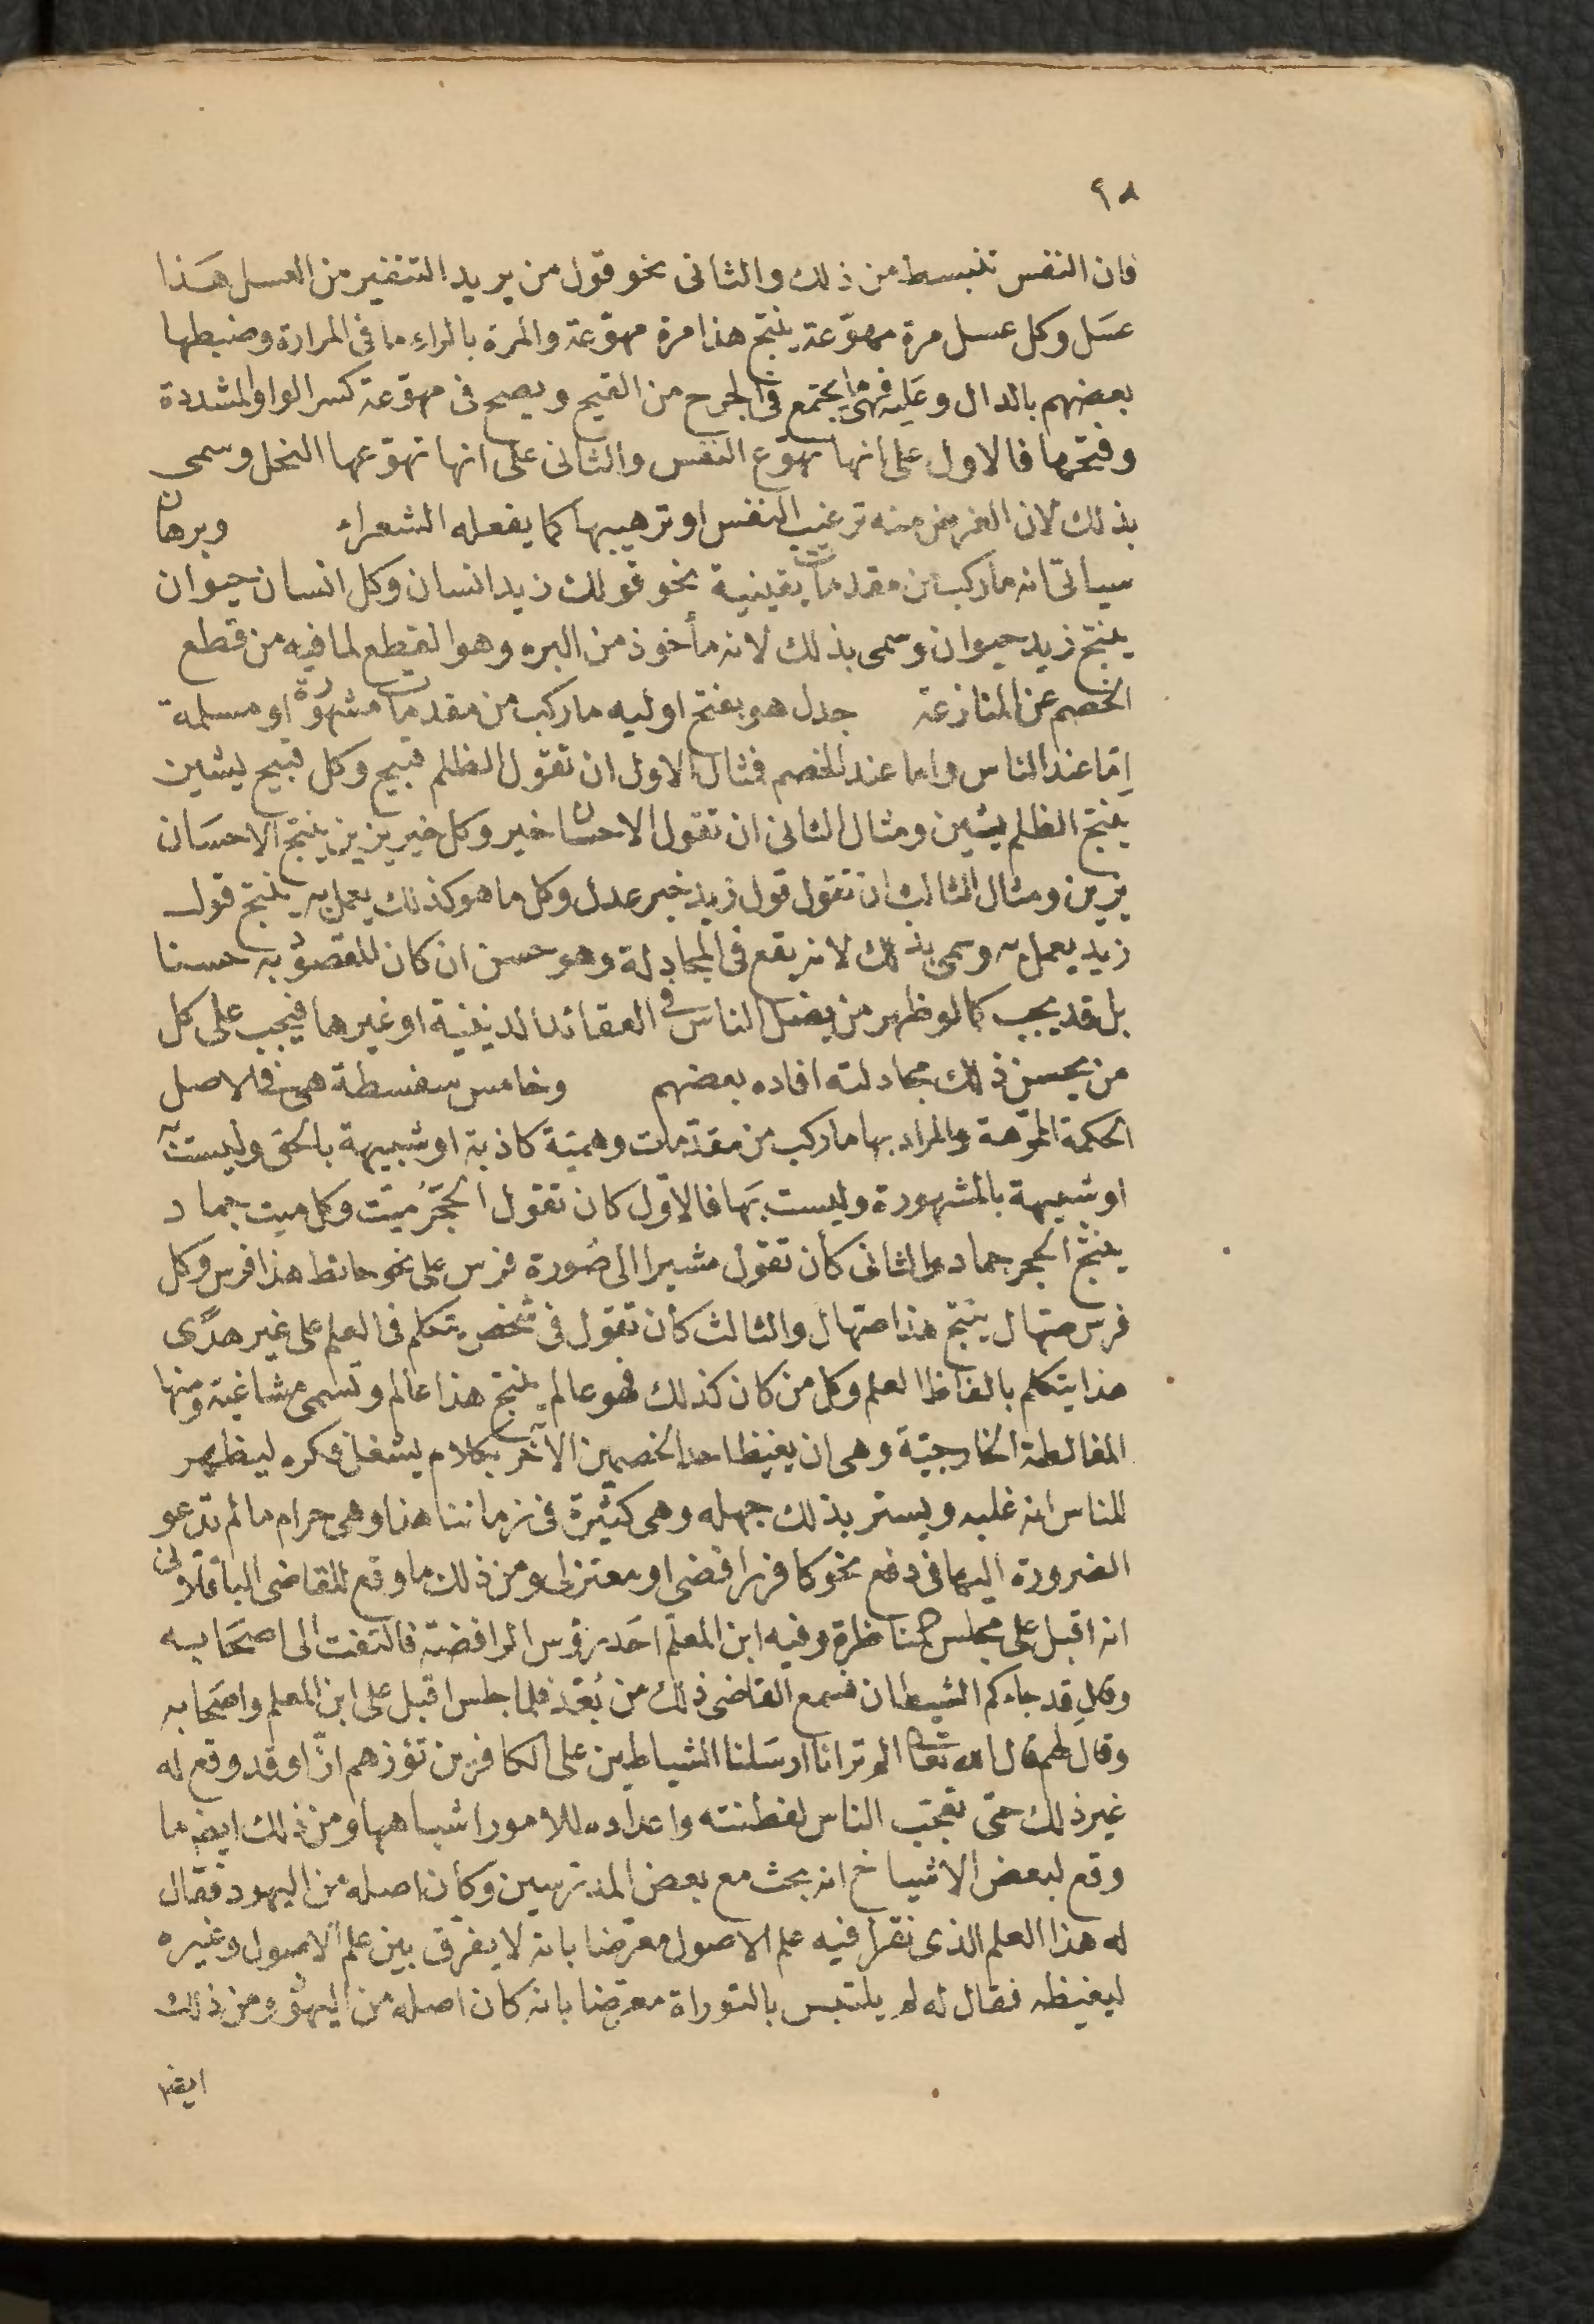 ٩٨
فان النفس تنبسط من ذلك والثانى نحو قول من يريد التنفير من العسل هَذا
عسَل وكل عسل مرة مهوّعة ينتج هذا مرة مهوّعة والمرة بالراءِ ما فى المرارة وضبطها
بعضهم بالدال وعَليه فهى ما يجتمع فى الجرح من القيح ويصح فى مهوّعة كسر الواو المشددة
وفتحها فالاول على انها تهوّع النفس والثانى على انها تهوّعها النحل وسمى
بذلك لان الغرض منه ترغيب النفس او ترهيبها كما يفعله الشعراء وبرهان
سياتى انه ما ركب من مقدمات يقينية نحو قولك زيد انسان وكل انسان حيوان
ينتج زيد حيوان وسمى بذلك لانه مأخوذ من البره وهو القطع لما فيه من قطع
الخصم عن المنازعة جدل هو بفتح اوليه ما ركب من مقدمات مشهورة او مسلمة
اِمّا عند الناس واما عند الخصم فمثال الاول ان تقول الظلم قبيح وكل قبيح يشين
ينتج الظلم يشين ومثال الثانى ان تقول الاحسان خير وكل خير يزين ينتج الاحسَان
يزين ومثال الثالث ان تقول قول زيد خبر عدل وكل ما هو كذلك يعمل به ينتج قول
زيد يعمل به وسمى بذلك لانه يقع فى المجادلة وهو حسن ان كان المقصود به حسنا
بل قد يجب كما لو ظهر من يضل الناس فى العقائد الدينية او غيرها فيجب على كل
من يحسن ذلك مجادلته افاده بعضهم وخامس سفسطة هى فى الاصل
الحكمة المموّهة والمراد بها ما ركب من مقدّمات وهميّة كاذبة او شبيهة بالحق وليست به
او شبيهة بالمشهورة وليست بَها فالاوّل كان تقول الحجَرُ ميّت وكل ميت جماد
ينتج الحجر جماد والثانى كأن تقول مشيرا الى صُورة فرس على نحو حائط هذا فرس وكل
فرس صهال ينتج هذا صهال والثالث كأن تقول فى شخص يتكلم فى العلم على غير هدًى
هذا يتكلم بالفاظ العلم وكل من كان كذلك فهو عالم ينتج هذا عالم وتسمى مشاغبة ومنها
المغالطة الخارجيّة وهى ان يغيظ احد الخصمين الآخر بكلام يشغل فكره ليظهر
للناس انه غلبه ويستر بذلك جهله وهى كثيرة فى زماننا هذا وهى حرام ما لم تدعو
الضرورة اليها فى دفع نحو كافر رافضى او معتزلى ومن ذلك ما وقع للقاضى الباقلاولى
انه اقبل على مجلس المناظرة وفيه ابن المعلم احَد رؤس الرافضة فالتفت الى اصحَابه
وقال قد جاءكم الشيطان فسمع القاضى ذلك من بُعْد فلما جلس اقبل على ابن المعلم واصحَابه
وقال لهم قال الله تعالى الم تر انا ارسَلنا الشياطين على الكافرين تؤزهم ازّا وقد وقع له
غير ذلك حتى تعجّب الناس لفطنته واعداده للامور اشباهها ومن ذلك ايضا ما
وقع لبعض الاشياخ انه بحث مع بعض المدرّسين وكان اصله من اليهود فقال
له هذا العلم الذى نقرأ فيه علم الاصول معرّضا بانه لا يفرّق بين علم الاصول وغيره
ليغيظه فقال له لم يلتبس بالتوراة معرّضا بانه كان اصله من اليهود ومن ذلك
ايضا